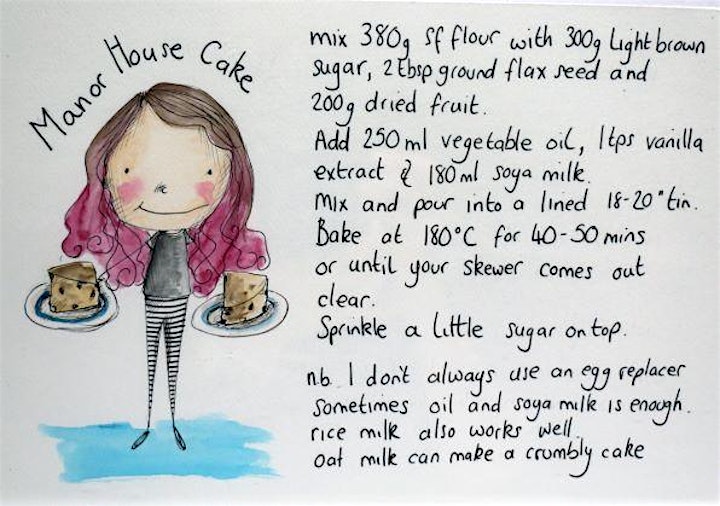 Manor House Cake
mix 380g sf flour with 300g light brown
sugar, 2 tbsp ground flax seed and
200g dried fruit.
Add 250 ml vegetable oil, 1 tps vanilla
extract & 180ml soya milk.
Mix and pour into a lined 18-20" tin.
Bake at 180°C for 40-50 mins
or until your skewer comes out
clear.
Sprinkle a little sugar on top.
n.b. I don't always use an egg replacer
sometimes oil and soya milk is enough.
rice milk also works well.
oat milk can make a crumbly cake